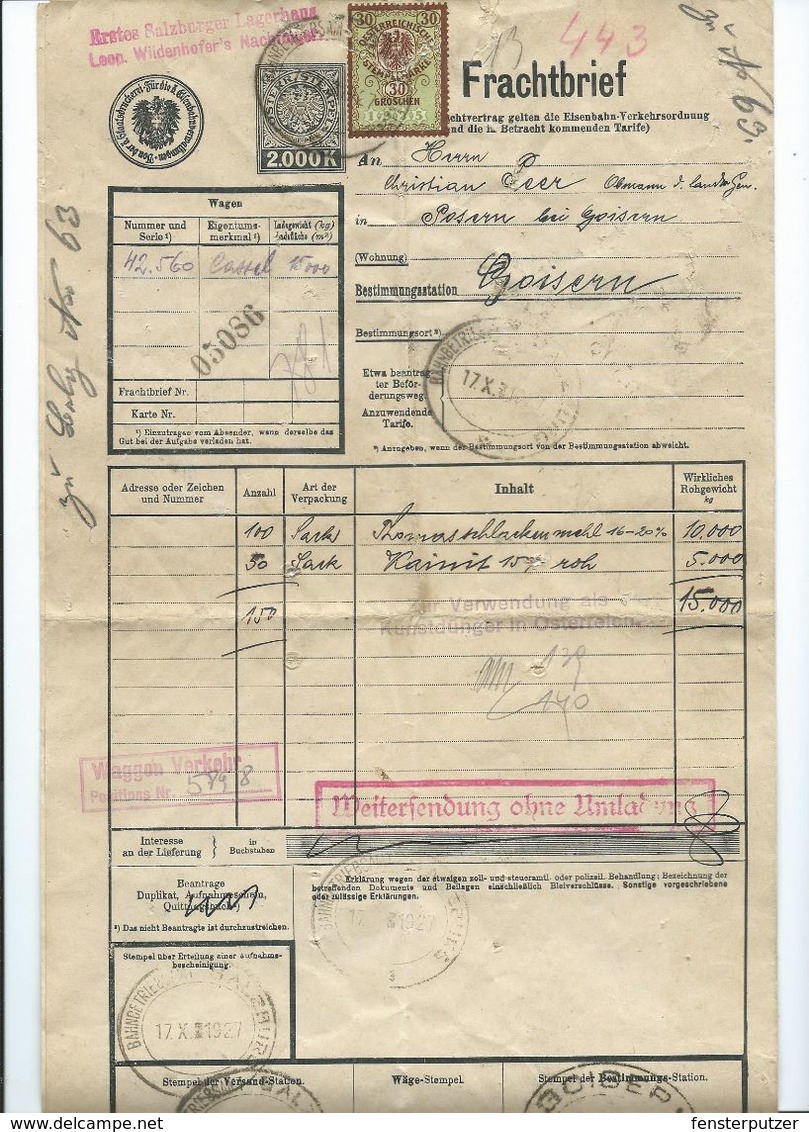 Erstes Salzburger Lagerhaus
Leop. Wildenhofer's Nachfolger
443
Für die k. Eisenbahnverwaltungen
Von der k. Staatsdruckerei
ÖSTERR. STEMPEL
2.000 K
30 30
ÖSTERREICHISCHE
STEMPELMARKE
30
GROSCHEN
1925
Frachtbrief
chtvertrag gelten die Eisenbahn-Verkehrsordnung
nd die in Betracht kommenden Tarife)
zu No 63.
zu No 63
An Herrn
Christian Peer Obmann d. landw. Gen.
in Posern bei Goisern
(Wohnung)
Bestimmungsstation Goisern
Bestimmungsort ²)
Etwa beantrag-
ter Beför-
derungsweg.
Anzuwendende
Tarife.
BAHNBETRIEBS
17.X.1927
²) Anzugeben, wenn der Bestimmungsort von der Bestimmungsstation abweicht.
Wagen
Nummer und Serie ¹) Eigentums-merkmal ¹) Ladegewicht (kg) Ladefläche (m²)
42.560 Cassel 15000
03086
Frachtbrief Nr.
Karte Nr.
¹) Einzutragen vom Absender, wenn derselbe das
Gut bei der Aufgabe verladen hat.
Adresse oder Zeichen und Nummer Anzahl Art der Verpackung Inhalt Wirkliches Rohgewicht kg
100 Sack Thomasschlackenmehl 16-20% 10.000
50 Sack Kainit 15% roh 5.000
150 15.000
Zur Verwendung als
Kunstdünger in Österreich
139
140
Waggon Verkehr
Positions Nr.
Weitersendung ohne Umladung
Interesse
an der Lieferung } in Buchstaben
Beantrage
Duplikat, Aufnahmsschein,
Quittungsbuch ³)
³) Das nicht Beantragte ist durchzustreichen.
Erklärung wegen der etwaigen zoll- und steueramtl. oder polizeil. Behandlung; Bezeichnung der
betreffenden Dokumente und Beilagen einschließlich Bleiverschlüsse. Sonstige vorgeschriebene
oder zulässige Erklärungen.
17.X.1927
Stempel über Erteilung einer Aufnahms-
bescheinigung.
BAHNBETRIEBSAMT SALZBURG
17.X.1927
Stempel der Versand-Station. Wäge-Stempel. Stempel der Bestimmungs-Station.
GOISER
fensterputzer